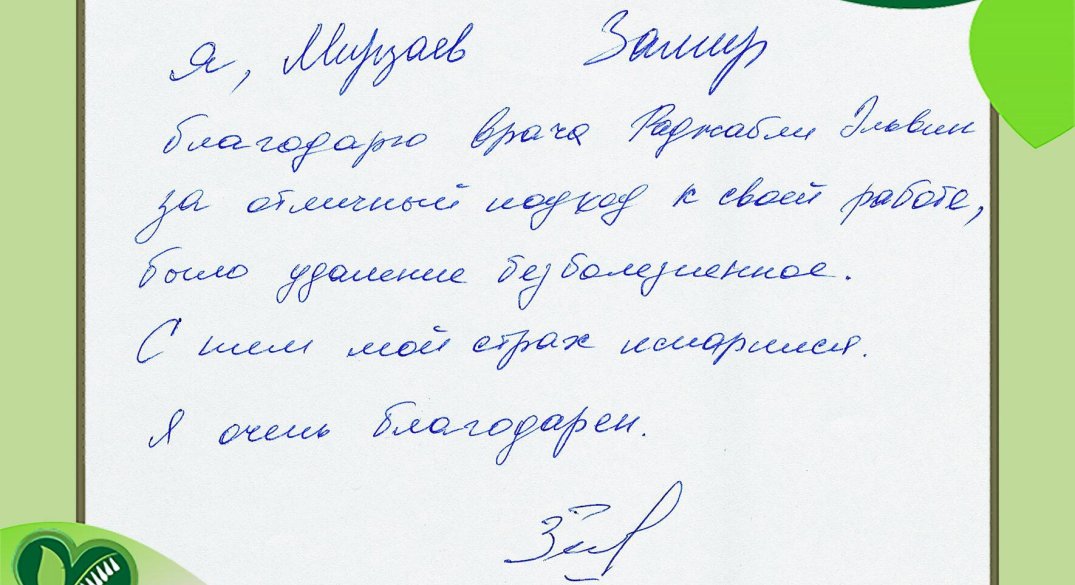 Я, Мирзаев Замир
благодарю врача Раджабли Эльвин
за отличный подход к своей работе,
было удаление безболезненное.
С ним мой страх испарился.
Я очень благодарен.